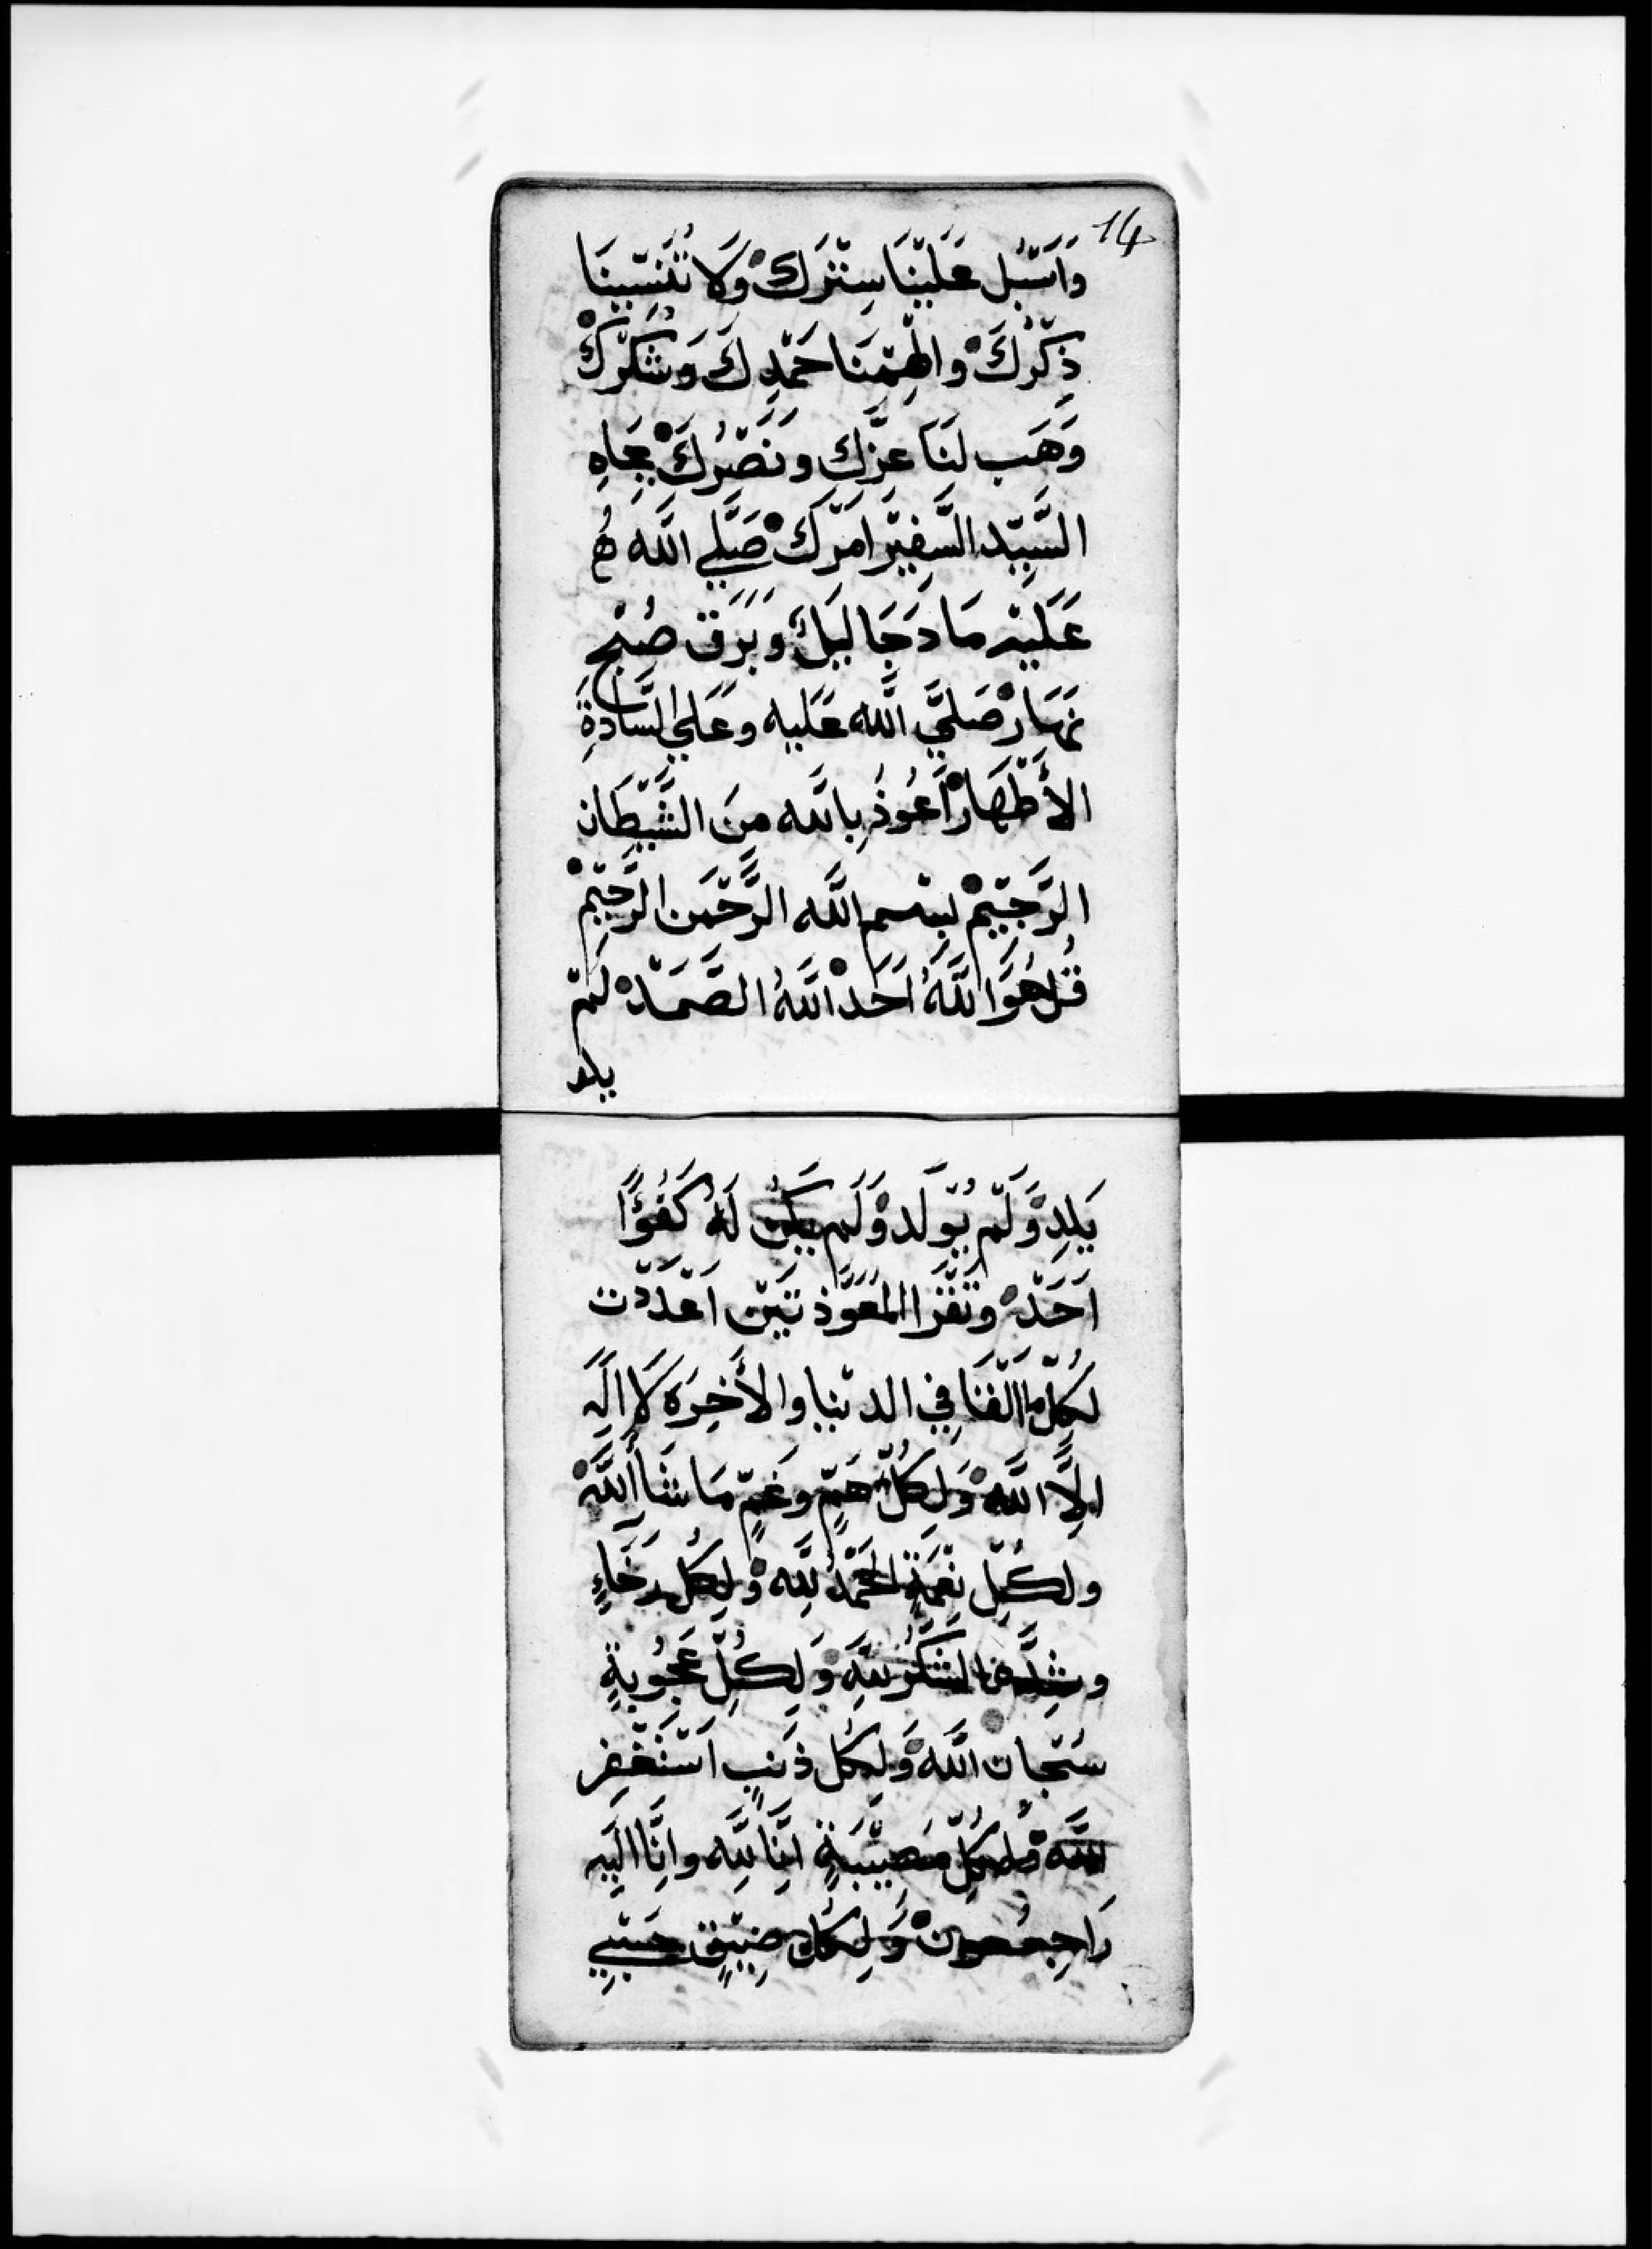 14
وَاَسْبُل عَلَيْنَا سِتْرَكْ وَلَا تُنَسِّينَا
ذِكْرَكَ والهِمْنَا حَمْدِكَ وَشُكْرَكْ
وَهَب لَنَا عِزَّكِ ونَصْرُكَ بِجَاهِ
السَّيِّد السَّفِيْر امْرَكْ صَلَّي اللَّه هُ
عَلَيْه مَا دَجَا لَيلٌ وبَرَق صُبْح
نَهَارْ صَلَّي اللَّه عَلَيه وعَلَي السَّادةِ
الأَطْهَارْ اَعُوذُ بِاللَّه مِنَ الشَّيْطَان
الرَّجِيْمْ بِسْم اللَّه الرَّحْمَن الرَّحِيْمْ
قُل هُوَ اللَّهُ اَحَدْ اللَّهُ الصَّمَدْ لَمْ
يلد
يَلِدْ وَلَمْ يُوْلَد وَلَم يَكُن لَهُ كَفُؤًا
اَحَدْ وتَقْرَا المُعَوَّذ تَيْن اَعْدَدْت
لكُلِّ ما اَلْقَا فِي الدنْيا والأَخِرَه لَا اِلَه
اِلاَّ اللَّه وَلِكُلِّ هَمٍّ وغَمٍّ مَا شَأَاللَّهْ
ولكُلِّ نِعْمَةٍ الحَمْدُ لِلَّه وَلِكُل رَخَاءٍ
وشِدَّه الشُّكْرُ لِلَّهِ وَلِكُلِّ عَجُوبَةٍ
سُبْحان اللَّه وَلِكُل ذَنبٍ اَسْتَغْفِر
اللَّه وَلِكُلِّ مُصِيْبَةٍ اِنَّا لِلَّه وانَّا اِلَيه
رَاجِعُونْ وَلِكُل ضِيْقٍ حَسْبِي